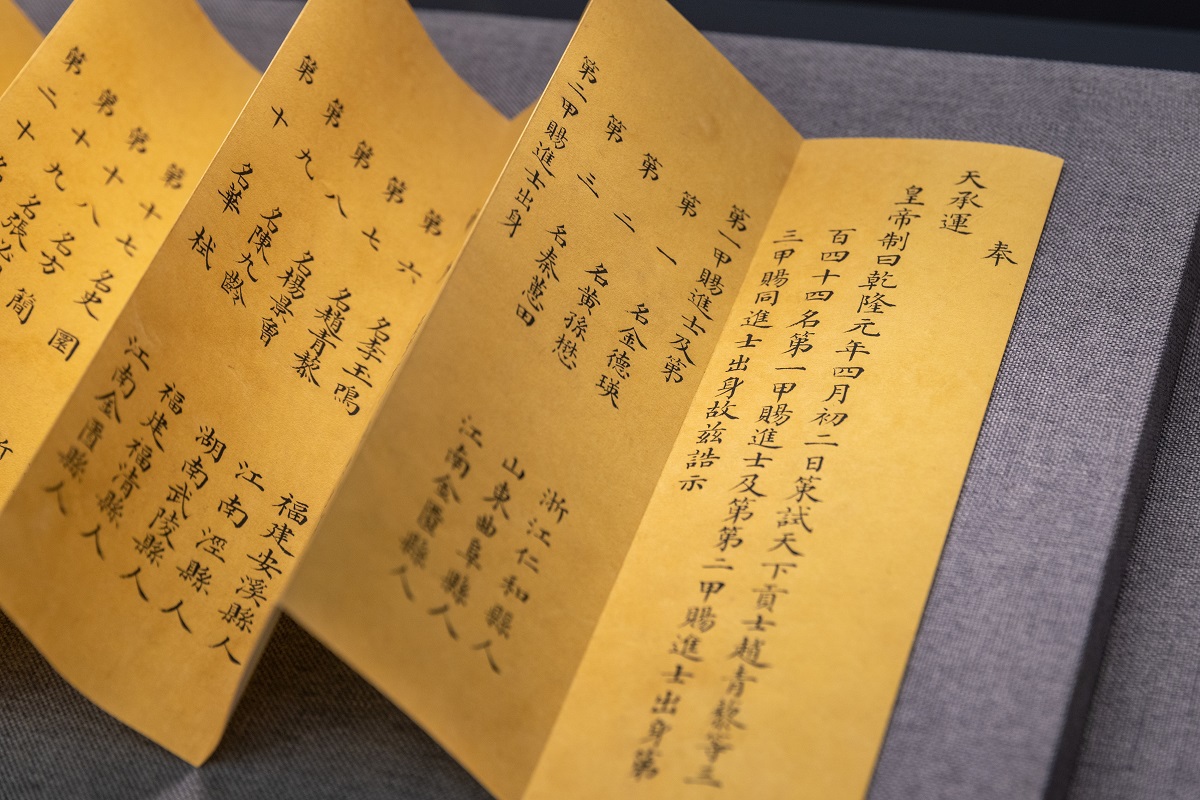 奉
天承運
皇帝制曰乾隆元年四月初二日策試天下貢士趙青藜等三
百四十四名第一甲賜進士及第第二甲賜進士出身第
三甲賜同進士出身故茲誥示
第一甲賜進士及第
第一名金德瑛 浙江仁和縣人
第二名黃孫懋 山東曲阜縣人
第三名秦蕙田 江南金匱縣人
第二甲賜進士出身
第六名李玉鳴 福建安溪縣人
第七名趙青藜 江南涇縣人
第八名楊景曾 湖南武陵縣人
第九名陳九齡 福建福清縣人
第十名華栻 江南金匱縣人
第十七名史
第十八名方簡
第十九名張必
第二十名